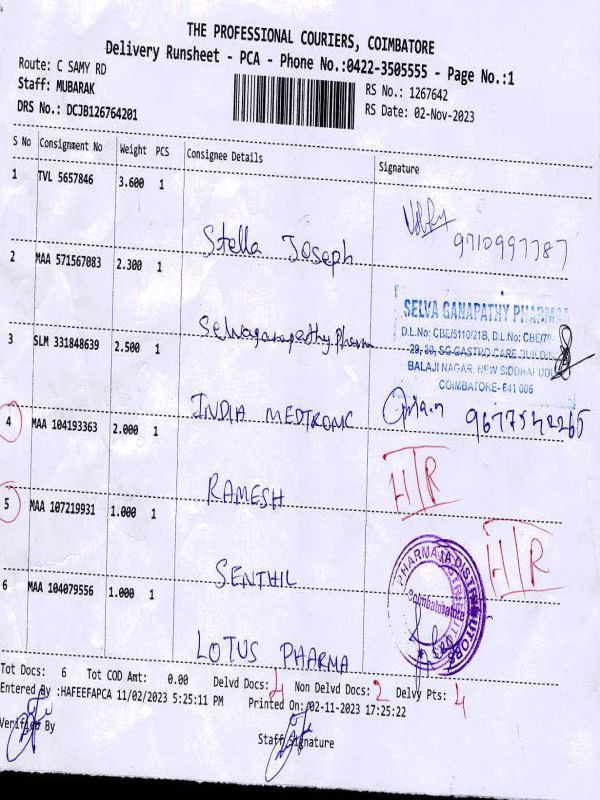 THE PROFESSIONAL COURIERS, COIMBATORE
Delivery Runsheet - PCA - Phone No.:0422-3505555 - Page No.:1
Route: C SAMY RD
Staff: MUBARAK
DRS No.: DCJB126764201
RS No.: 1267642
RS Date: 02-Nov-2023
S No Consignment No Weight PCS Consignee Details Signature
1 TVL 5657846 3.600 1
Stella Joseph
9710997787
2 MAA 571567083 2.300 1
Selvaganapathy Pharma
SELVA GANAPATHY PHARMAA
D.L.No: CBE/5110/21B, D.L.No: CBE/
29, 30, SG GASTRO CARE BUILDI
BALAJI NAGAR, NEW SIDDHAPUDU
COIMBATORE- 641 006
3 SLM 331848639 2.500 1
INDIA MEDTRONIC
9677542265
4 MAA 104193363 2.000 1
RAMESH
5 MAA 107219931 1.000 1
SENTHIL
6 MAA 104079556 1.000 1
LOTUS PHARMA
PHARMA DISTRIBUTORS
Coimbatore
Tot Docs: 6 Tot COD Amt: 0.00 Delvd Docs: 4 Non Delvd Docs: 2 Delvy Pts: 4
Entered By :HAFEEFAPCA 11/02/2023 5:25:11 PM Printed On: 02-11-2023 17:25:22
Verified By
Staff Signature